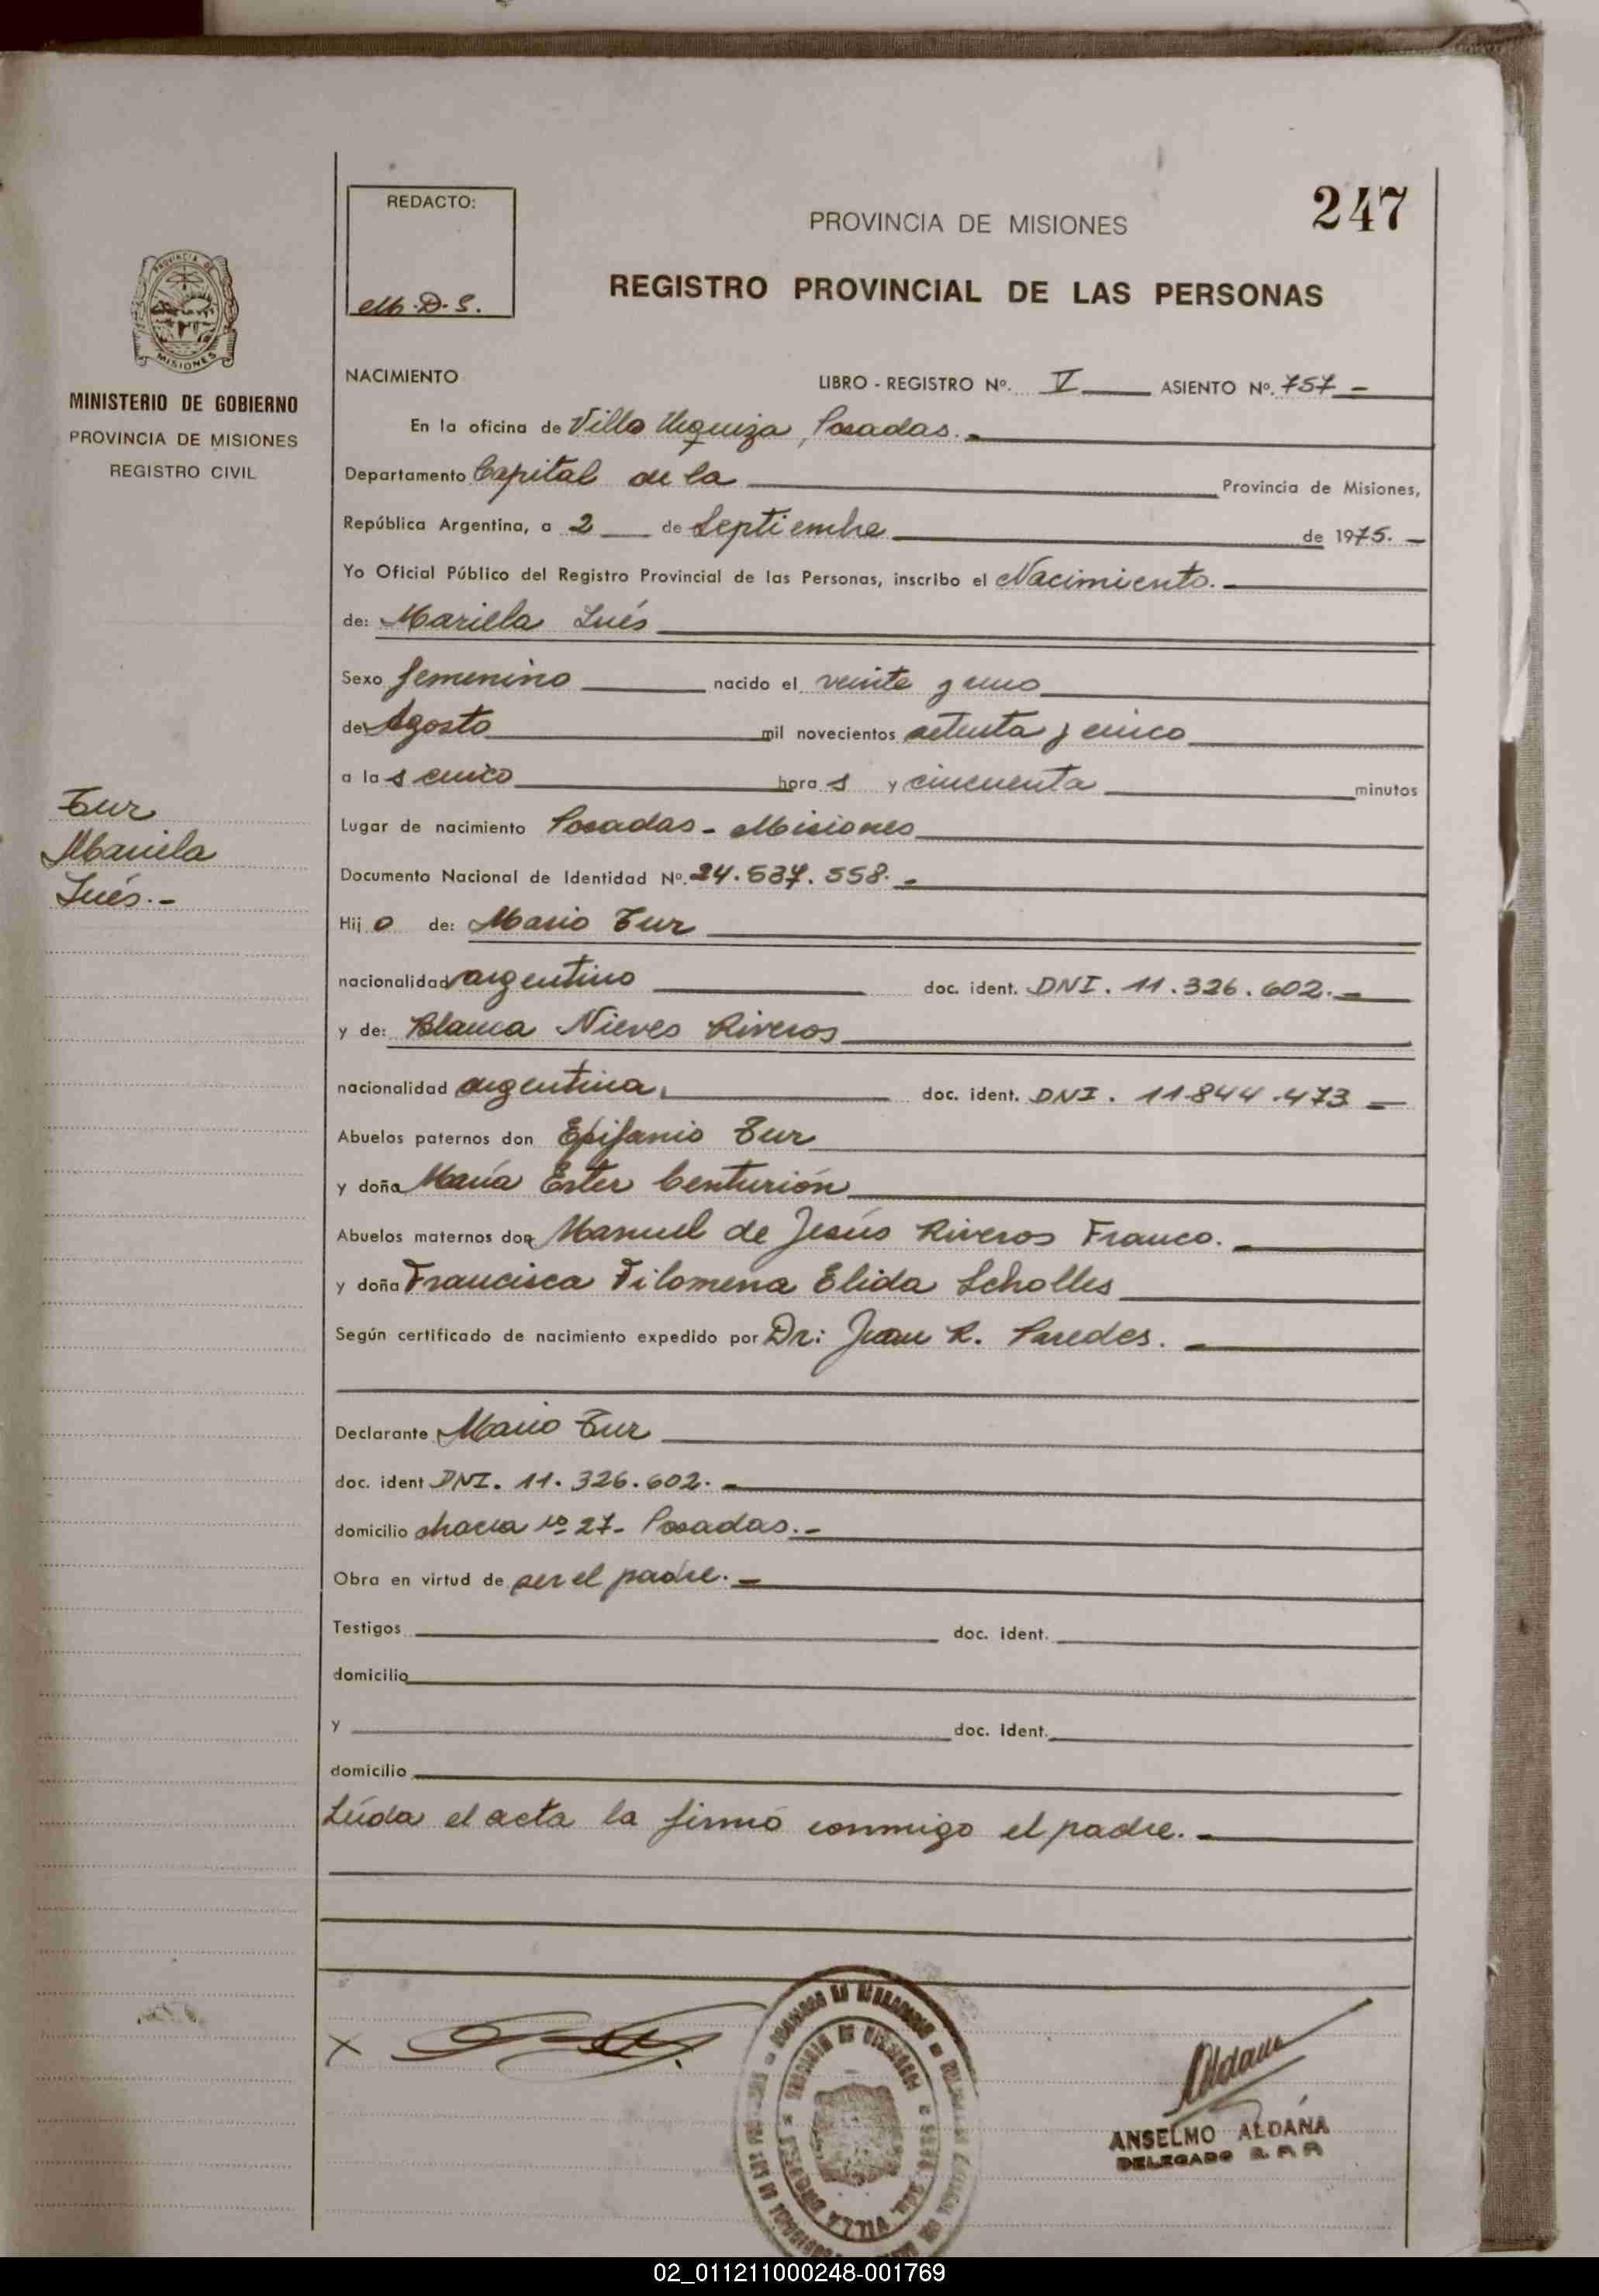 247
REDACTO:
PROVINCIA DE MISIONES
REGISTRO PROVINCIAL DE LAS PERSONAS
PROVINCIA DE
MISIONES
MINISTERIO DE GOBIERNO
PROVINCIA DE MISIONES
REGISTRO CIVIL
NACIMIENTO LIBRO - REGISTRO Nº. V ASIENTO Nº. 757 -
En la oficina de Villa Urquiza, Posadas. -
Departamento Capital de la Provincia de Misiones,
República Argentina, a 2 de Septiembre de 1975. -
Yo Oficial Público del Registro Provincial de las Personas, inscribo el Nacimiento. -
de: Mariela Inés
Sexo femenino nacido el veinte y uno
de Agosto mil novecientos setenta y cinco
a las cinco horas y cincuenta minutos
Lugar de nacimiento Posadas - Misiones
Documento Nacional de Identidad Nº. 24.537.558. -
Hijo de: Mario Tur
nacionalidad argentino doc. ident. DNI. 11.326.602. -
y de: Blanca Nieves Riveros
nacionalidad argentina, doc. ident. DNI. 11.844.473 -
Abuelos paternos don Epifanio Tur
y doña María Ester Centurión
Abuelos maternos don Manuel de Jesús Riveros Franco. -
y doña Francisca Filomena Elida Scholles
Según certificado de nacimiento expedido por Dr: Juan R. Paredes. -
Declarante Mario Tur
doc. ident DNI. 11.326.602. -
domicilio chacra nº 27 - Posadas. -
Obra en virtud de ser el padre. -
Testigos doc. ident.
domicilio
y doc. ident.
domicilio
Leída el acta la firmó conmigo el padre. -
Tur
Mariela
Inés. -
Aldana
ANSELMO ALDANA
DELEGADO R. P. P.
02_011211000248-001769